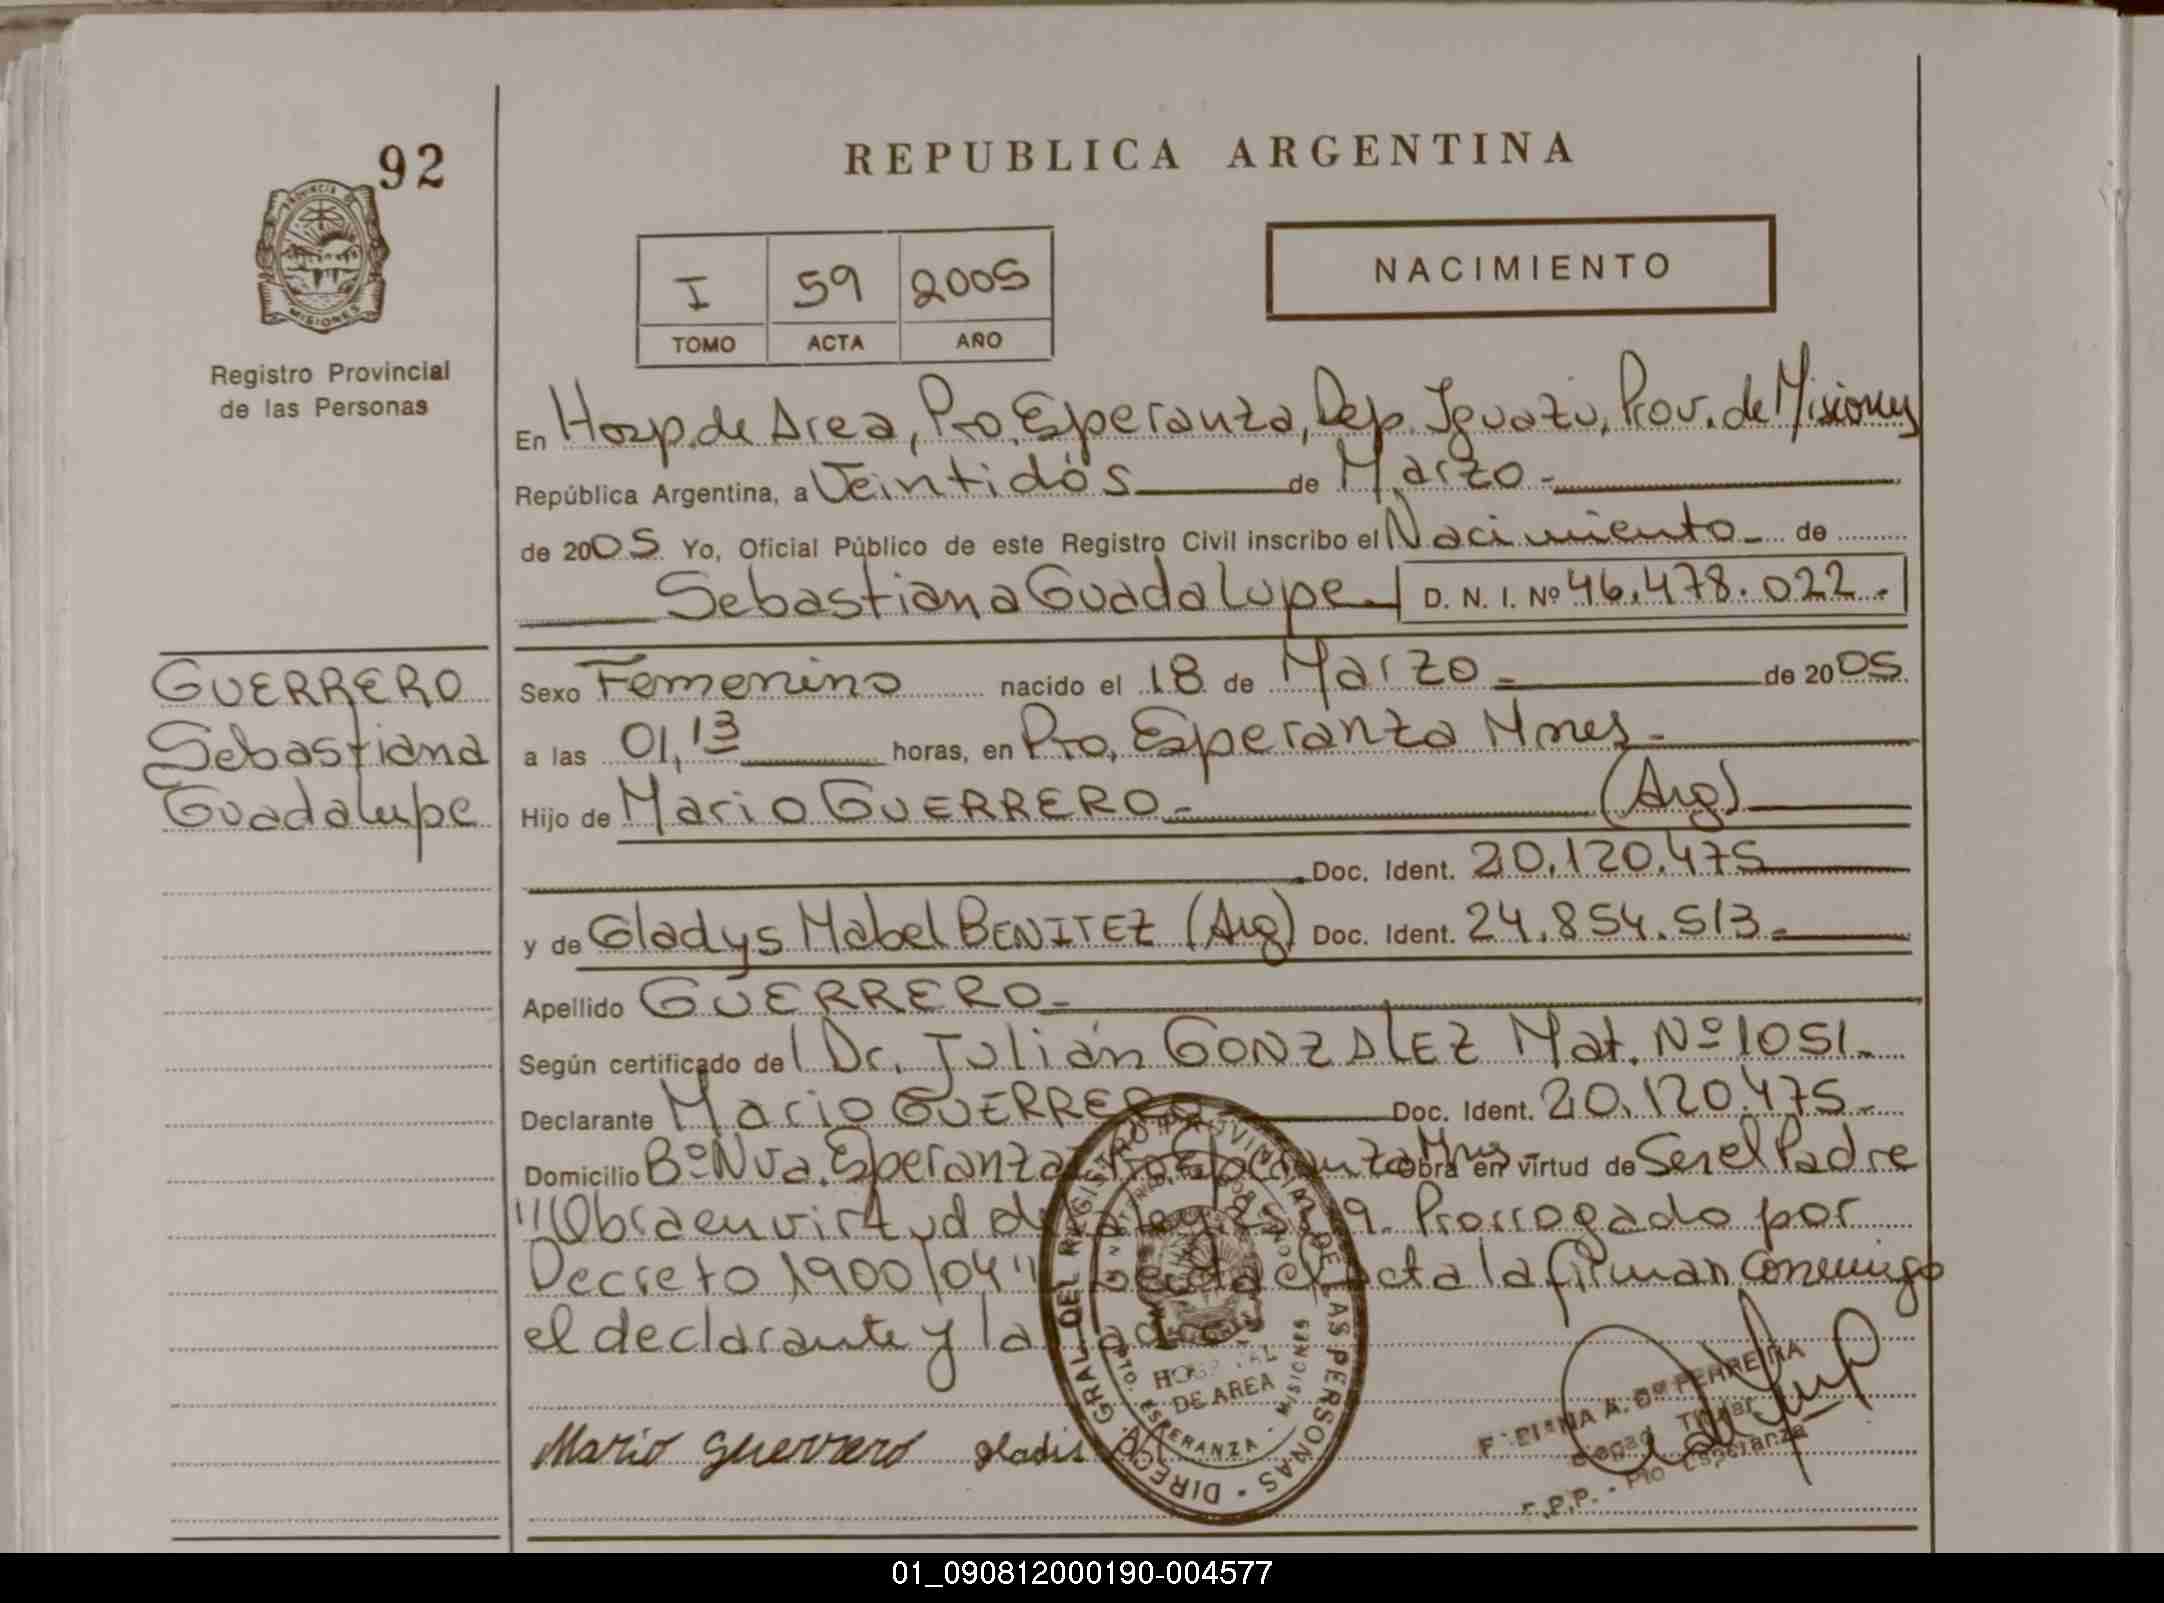 92
PROVINCIA DE
MISIONES
Registro Provincial
de las Personas
REPUBLICA ARGENTINA
I 59 2005
TOMO ACTA AÑO
NACIMIENTO
En Hosp. de Area, Pto. Esperanza, Dep. Iguazu, Prov. de Misiones
República Argentina, a Veintidós de Marzo.-
de 2005. Yo, Oficial Público de este Registro Civil inscribo el Nacimiento de
Sebastiana Guadalupe.- D. N. I. Nº 46.478.022.-
GUERRERO
Sebastiana
Guadalupe
Sexo Femenino nacido el 18 de Marzo.- de 2005.
a las 01,13 horas, en Pto. Esperanza Mnes.-
Hijo de Mario GUERRERO.- (Arg)
Doc. Ident. 20.120.475
y de Gladys Mabel BENITEZ (Arg) Doc. Ident. 24.854.513.-
Apellido GUERRERO.-
Según certificado del Dr. Julián GONZALEZ Mat. Nº 1051.-
Declarante Mario GUERRERO Doc. Ident. 20.120.475.-
Domicilio Bº Nva. Esperanza Pto. Esperanza Mnes Obra en virtud de Ser el Padre
"Obra en virtud de Ley 9. Prorrogado por
Decreto 1900/04" el acta la firman conmigo
el declarante y la
Mario guerrero gladis
DIRECC. GRAL. DEL REGISTRO PROVINCIAL DE LAS PERSONAS
HOSPITAL
DE AREA
PTO. ESPERANZA - MISIONES
A. Dº FERREIRA
Titular
R.P.P. - Pto Esperanza
01_090812000190-004577